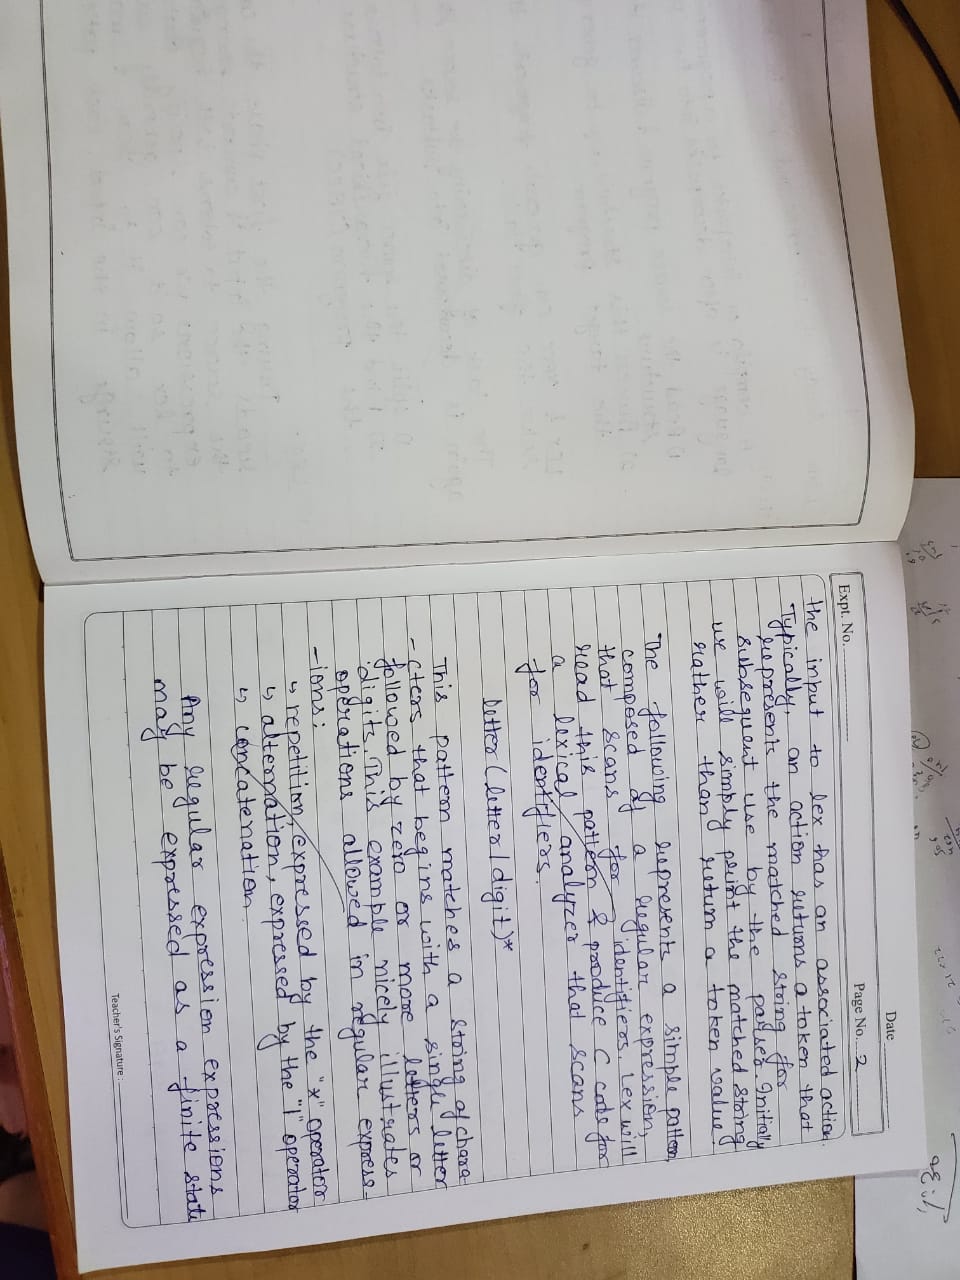 Date
Expt. No.
Page No. 2
the input to lex has an associated action.
Typically, an action returns a token that
represents the matched string for
subsequent use by the parser. Initially
we will simply print the matched string
rather than return a token value.
The following represents a simple pattern,
composed of a regular expression,
that scans for identifiers. Lex will
read this pattern & produce C code for
a lexical analyzer that scans
for identifiers.
letter(letter/digit)*
This pattern matches a string of chara-
-cters that begins with a single letter
followed by zero or more letters or
digits. This example nicely illustrates
operations allowed in regular express-
-ions:
↳ repetition, expressed by the "*" operator
↳ alternation, expressed by the "|" operator
↳ concatenation.
Any regular expression expressions
may be expressed as a finite state
Teacher's Signature :